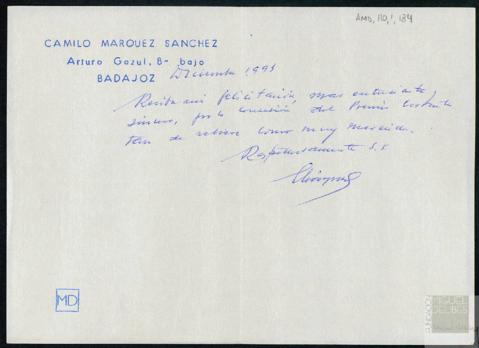 AMD, 110, 1, 134
CAMILO MARQUEZ SANCHEZ
Arturo Gazul, 8- bajo
BADAJOZ
Diciembre 1993
Reciba mi felicitación, mas entusiasta,
sincera, por la concesión del Premio Cervantes
tan de relieve como muy merecido.
Respetuosamente S. S.
MD
FUNDACIÓN
MIGUEL
DELIBES